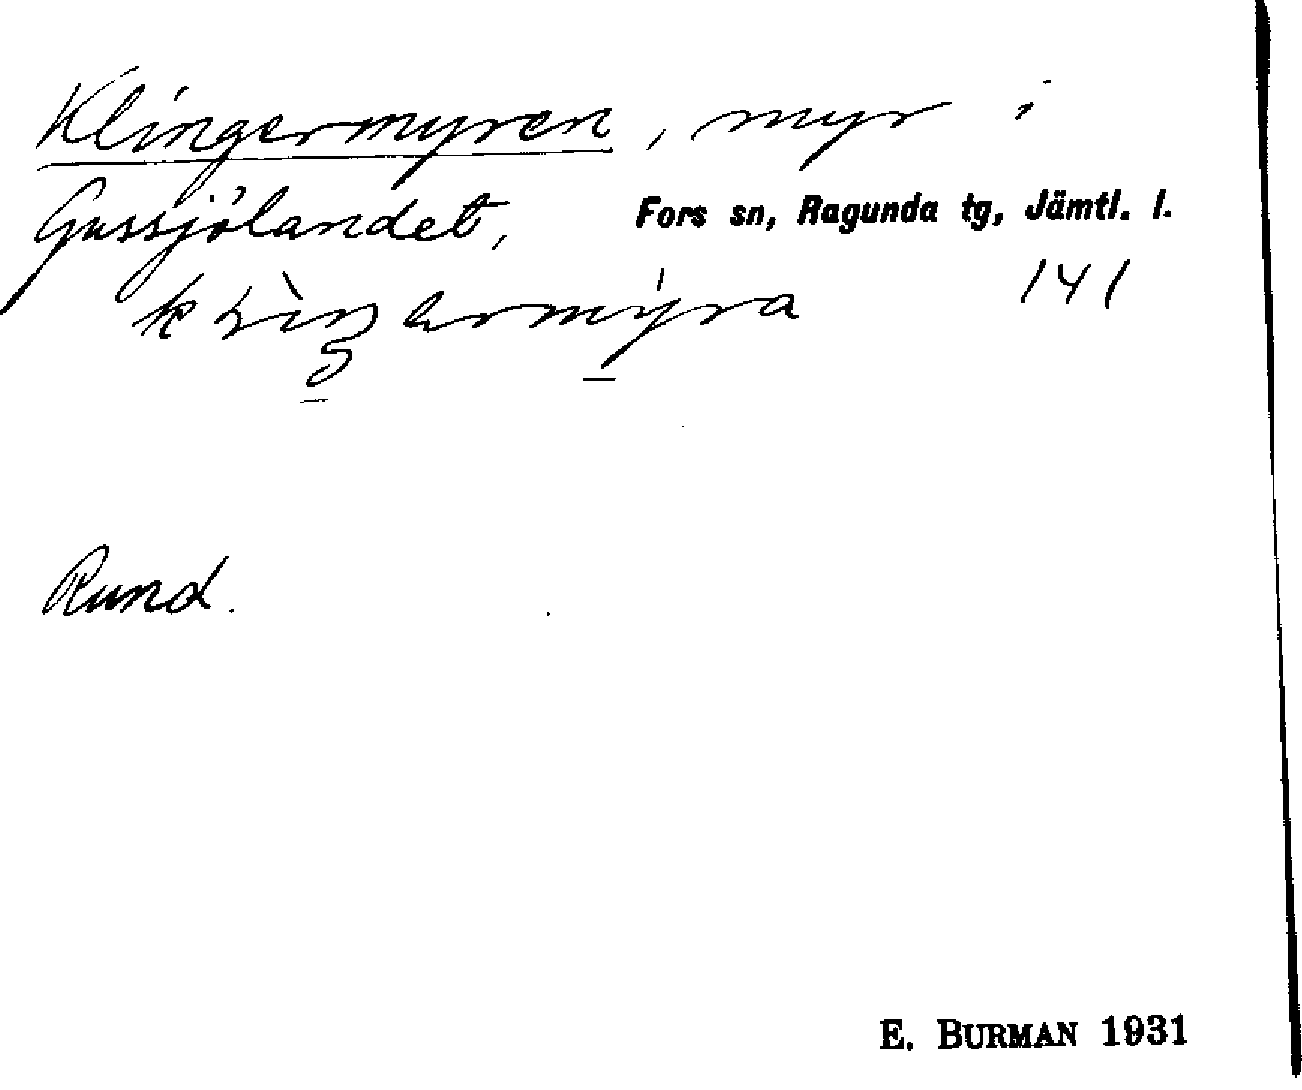 Klingermyren, myr i
Gussjölandet, Fors sn, Ragunda tg, Jämtl. l.
141
Rund.
E. BURMAN 1931